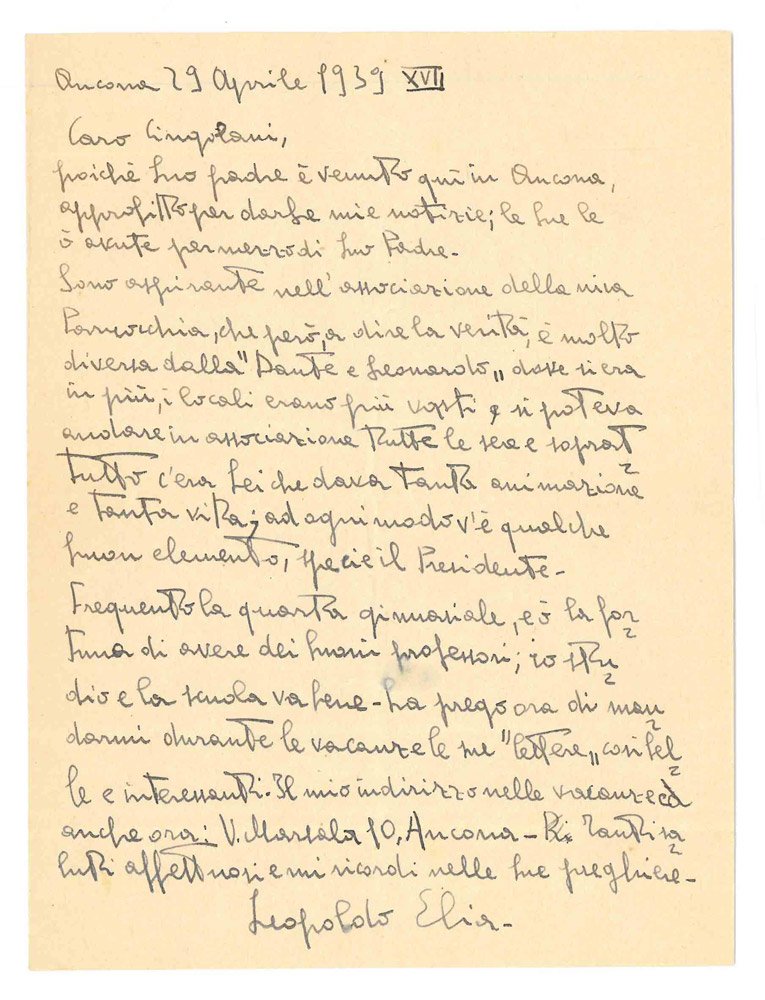 Ancona 29 Aprile 1939 XVII
Caro Cingolani,
poichè suo padre è venuto quì in Ancona,
approfitto per darLe mie notizie; le sue le
ò avute per mezzo di suo Padre-
Sono aspirante nell'associazione della mia
Parrocchia, che però, a dire la verità, è molto
diversa dalla "Dante e Leonardo„ dove si era
in più, i locali erano più vasti e si poteva
andare in associazione tutte le sere e soprat=
tutto c'era Lei che dava tanta animazione
e tanta vita; ad ogni modo v'è qualche
buon elemento, specie il Presidente-
Frequento la quarta ginnasiale, e ò la for=
tuna di avere dei buoni professori; io stu=
dio e la scuola va bene- La prego ora di man=
darmi durante le vacanze le sue "lettere„ così bel=
le e interessanti. Il mio indirizzo nelle vacanze ed
anche ora: V. Marsala 10, Ancona- Tanti sa=
luti affettuosi e mi ricordi nelle sue preghiere-
Leopoldo Elia-